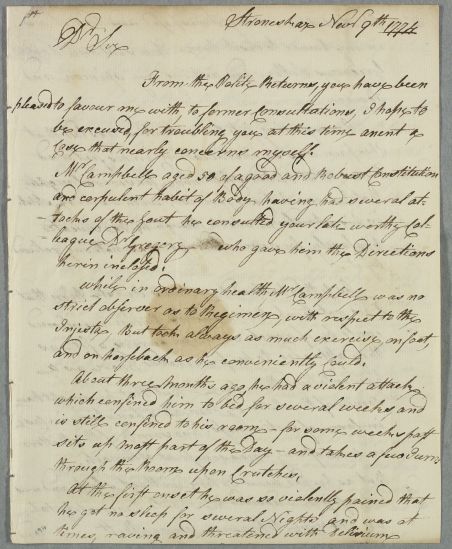 Stroneshae Novr 9th 1774
Dr Sir
From the Polite Returns, you have been
pleased to favour me with, to former Consultations, I hope to
be excused, for troubling you at this time anent a
Case that nearly concerns myself.
Mr Campbell aged 50 of a good and Robust Constitution
and corpulent habit of Body, having had several at-
-tacks of the Gout he consulted your late worthy Col-
league Dr Gregory who gave him the Directions
herein inclosed.
While in ordinary health Mr Campbell was no
strict observer as to Regimen, with respect to the
Injesta. But took always as much exercise on foot,
and on horseback as he conveniently could.
About three months ago he had a violent attack
which confined him to bed for several weeks and
is still confined to his room - for some weeks past
sits up most part of the Day - and takes a few turns
through the room upon Crutches.
At the first onset he was so violently pained that
he got no sleep for several Nights and was at
times, raving and threatened with Delirium